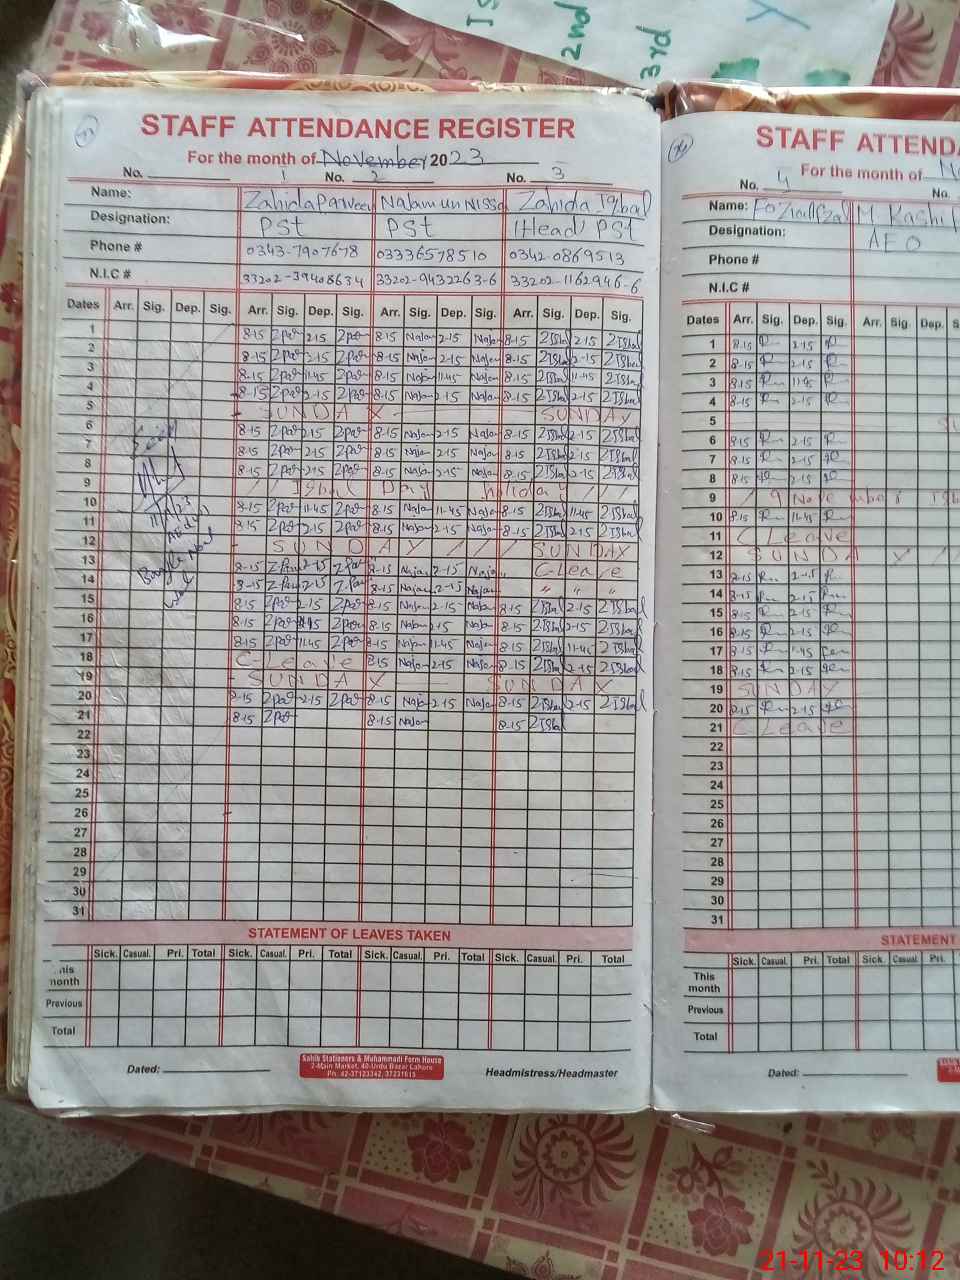 Is
2nd
3rd
y
STAFF ATTENDANCE REGISTER
For the month of November 2023
No. 1 No. 2 No. 3
Name: Zahida Parveen Najam un Nissa Zahida Iqbal
Designation: PSt PSt (Head) PSt
Phone # 0343-7907678 03336578510 0342-0869513
N.I.C # 33202-39408634 33202-9432263-6 33202-1162946-6
Dates Arr. Sig. Dep. Sig. Arr. Sig. Dep. Sig. Arr. Sig. Dep. Sig. Arr. Sig. Dep. Sig.
1 8-15 Zpar 2-15 Zpar 8-15 Najam 2-15 Najam 8-15 ZIqbal 2-15 ZIqbal
2 8-15 Zpar 2-15 Zpar 8-15 Najam 2-15 Najam 8-15 ZIqbal 2-15 ZIqbal
3 8-15 Zpar 11-45 Zpar 8-15 Najam 11-45 Najam 8-15 ZIqbal 11-45 ZIqbal
4 8-15 Zpar 2-15 Zpar 8-15 Najam 2-15 Najam 8-15 ZIqbal 2-15 ZIqbal
5 SUNDAY SUNDAY
6 8-15 Zpar 2-15 Zpar 8-15 Najam 2-15 Najam 8-15 ZIqbal 2-15 ZIqbal
7 8-15 Zpar 2-15 Zpar 8-15 Najam 2-15 Najam 8-15 ZIqbal 2-15 ZIqbal
8 8-15 Zpar 2-15 Zpar 8-15 Najam 2-15 Najam 8-15 ZIqbal 2-15 ZIqbal
9 Iqbal Day holiday
10 8-15 Zpar 11-45 Zpar 8-15 Najam 11-45 Najam 8-15 ZIqbal 11-45 ZIqbal
11 8-15 Zpar 2-15 Zpar 8-15 Najam 2-15 Najam 8-15 ZIqbal 2-15 ZIqbal
12 SUNDAY SUNDAY
13 8-15 Z-Par 2-15 Z-Par 8-15 Najam 2-15 Najam C-Leave
14 8-15 Z-Par 2-15 Z-Par 8-15 Najam 2-15 Najam " " "
15 8-15 Zpar 2-15 Zpar 8-15 Najam 2-15 Najam 8-15 ZIqbal 2-15 ZIqbal
16 8-15 Zpar Zpar 8-15 Najam 2-15 Najam 8-15 ZIqbal 2-15 ZIqbal
17 8-15 Zpar 11-45 Zpar 8-15 Najam 11-45 Najam 8-15 ZIqbal 11-45 ZIqbal
18 C-Leave 8-15 Najam 2-15 Najam 8-15 ZIqbal 2-15 ZIqbal
19 SUNDAY SUNDAY
20 8-15 Zpar 2-15 Zpar 8-15 Najam 2-15 Najam 8-15 ZIqbal 2-15 ZIqbal
21 8-15 Zpar 8-15 Najam 8-15 ZIqbal
22
23
24
25
26
27
28
29
30
31
STATEMENT OF LEAVES TAKEN
Sick. Casual. Pri. Total Sick. Casual. Pri. Total Sick. Casual. Pri. Total Sick. Casual. Pri. Total
his month
Previous
Total
Dated: Headmistress/Headmaster
Sahib Stationers & Muhammadi Form House
2-Main Market, 40-Urdu Bazar Lahore
Ph: 42-37123342, 37231615
STAFF ATTENDA
For the month of N
No. 4 No.
Name: Fozia Afzal M Kashif
Designation: AEO
Phone #
N.I.C #
Dates Arr. Sig. Dep. Sig. Arr. Sig. Dep. S
1 8-15 2-15
2 8-15 2-15
3 8-15 11-45
4 8-15 2-15
5 SU
6 8-15 2-15
7 8-15 2-15
8 8-15 2-15
9 9 November
10 8-15 11-45
11 C Leave
12 SUNDAY
13 8-15 2-15
14 8-15 2-15
15 8-15 2-15
16 8-15 2-15
17 8-15 11-45
18 8-15 2-15
19 SUNDAY
20 8-15 2-15
21 C Leave
22
23
24
25
26
27
28
29
30
31
STATEMENT
Sick. Casual. Pri. Total Sick. Casual. Pri.
This month
Previous
Total
Dated:
21-11-23 10:12